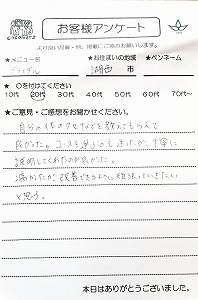 お客様アンケート
より良い品質・地、掲載にご協力お願いします。
★メニュー名 ★お住まいの地域 ★ペンネーム
ブライダル 湖西 市
★ ○を付けてください
10代 20代 30代 40代 50代 60代 70代〜
★ご意見・ご感想をお聞かせください。
自分の体のクセなどを教えてもらえて
良かった。コースを選ぶのも迷ったが、丁寧に
説明してくれたのが良かった。
痛かったが、改善できるように頑張っていきたい
と思う。
本日はありがとうございました。